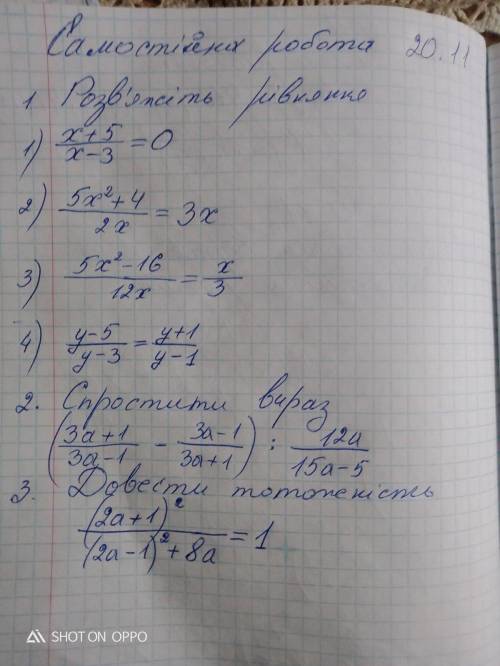 Самостійна робота 20.11
1. Розв'яжіть рівняння
1) (x+5)/(x-3) = 0
2) (5x²+4)/(2x) = 3x
3) (5x²-16)/(12x) = x/3
4) (y-5)/(y-3) = (y+1)/(y-1)
2. Спростити вираз
((3a+1)/(3a-1) - (3a-1)/(3a+1)) : 12a/(15a-5)
3. Довести тотожність
(2a+1)²/((2a-1)²+8a) = 1
SHOT ON OPPO